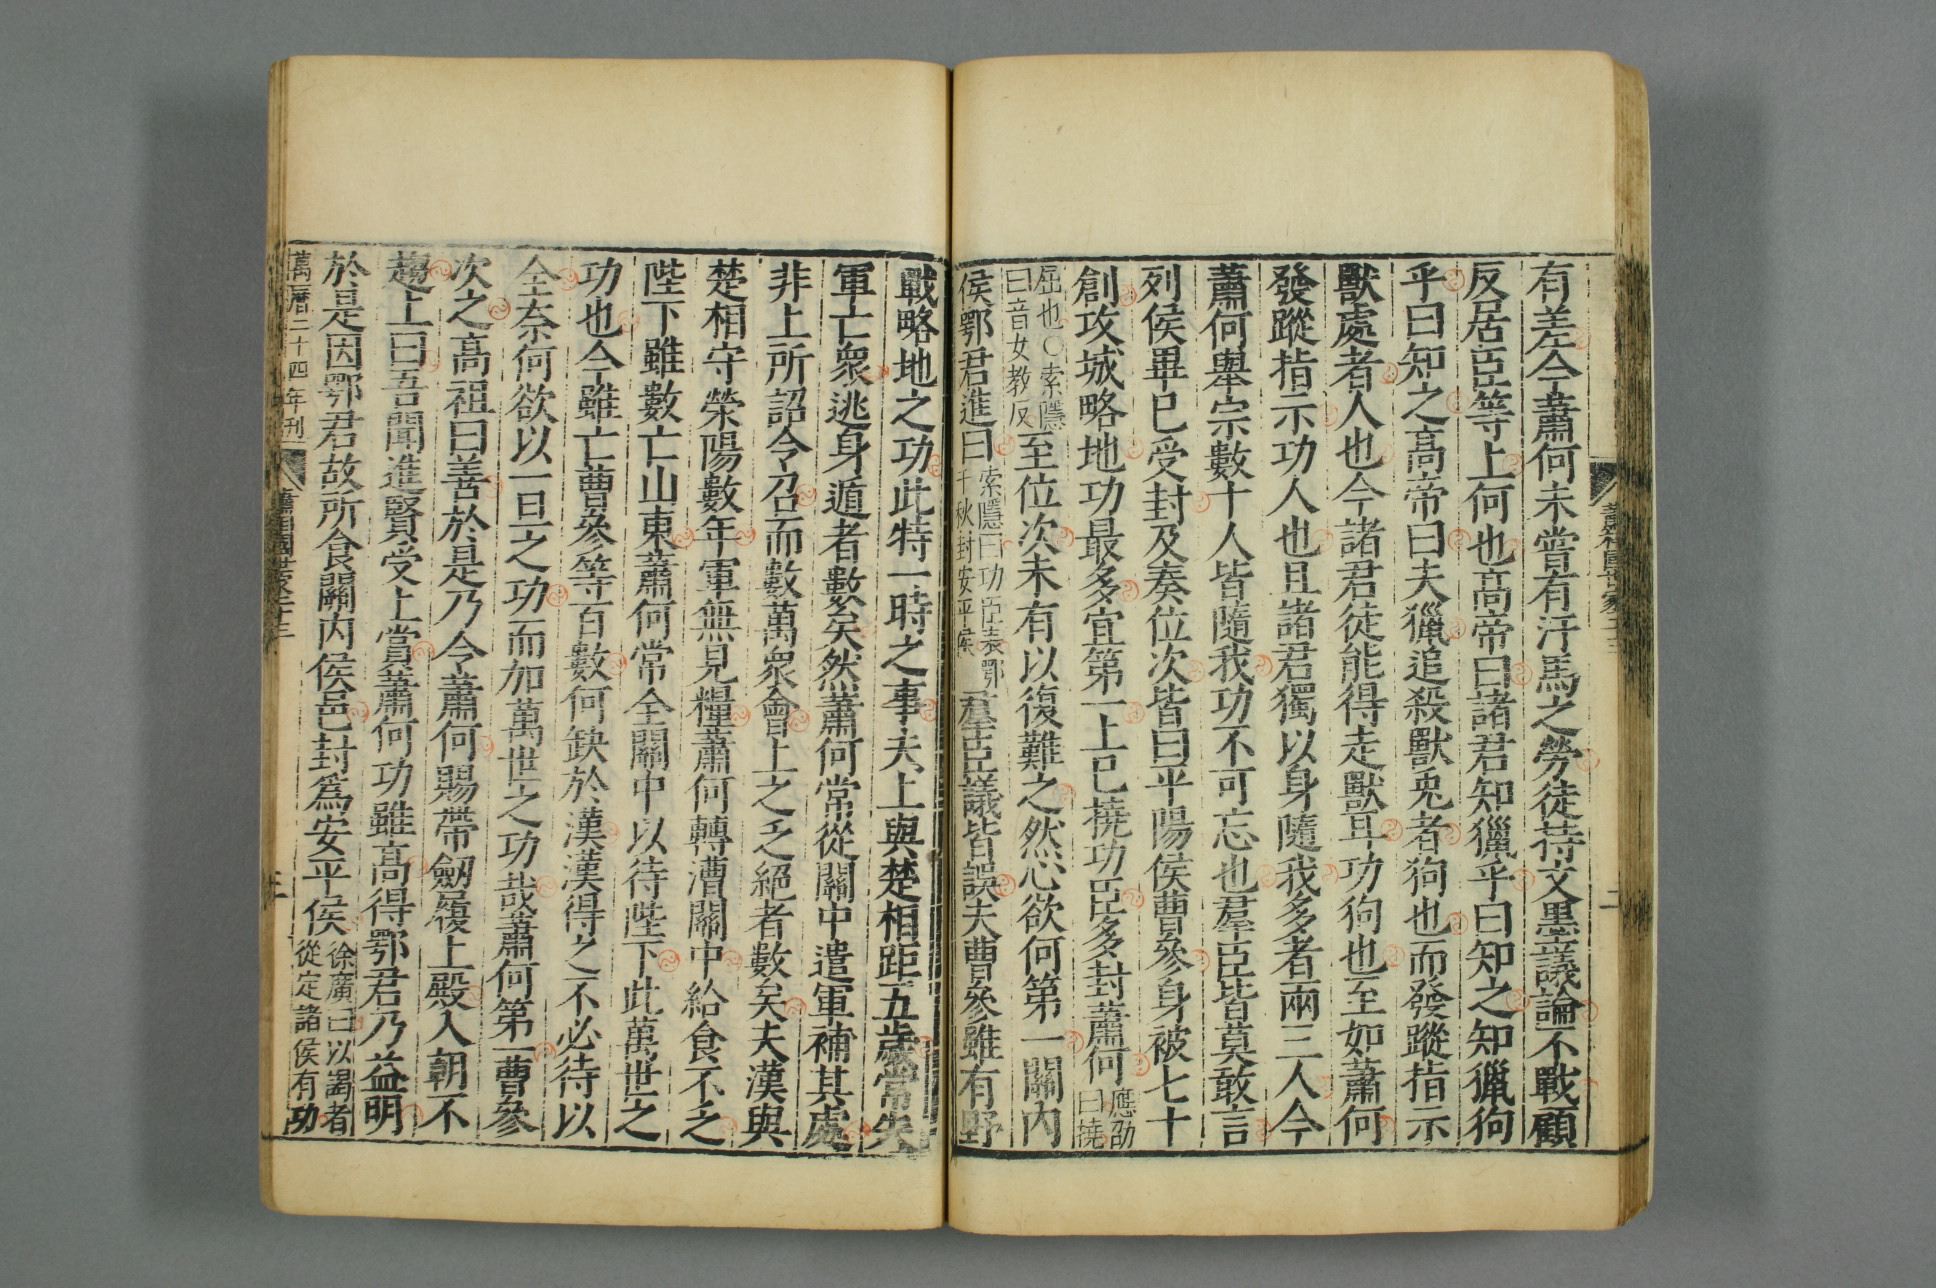 有差今蕭何未嘗有汗馬之勞徒持文墨議論不戰顧
反居臣等上何也高帝曰諸君知獵乎曰知之知獵狗
乎曰知之高帝曰夫獵追殺獸兎者狗也而發蹤指示
獸處者人也今諸君徒能得走獸耳功狗也至如蕭何
發蹤指示功人也且諸君獨以身隨我多者兩三人今
蕭何舉宗數十人皆隨我功不可忘也羣臣皆莫敢言
列侯畢已受封及奏位次皆曰平陽侯曹參身被七十
創攻城略地功最多宜第一上已撓功臣多封蕭何應劭曰撓
屈也○索隱曰音女教反至位次未有以復難之然心欲何第一關內
侯鄂君進曰索隱曰功臣表鄂千秋封安平侯羣臣議皆誤夫曹參雖有野
戰略地之功此特一時之事夫上與楚相距五歲常失
軍亡衆逃身遁者數矣然蕭何常從關中遣軍補其處
非上所詔令召而數萬衆會上之乏絕者數矣夫漢與
楚相守滎陽數年軍無見糧蕭何轉漕關中給食不乏
陛下雖數亡山東蕭何常全關中以待陛下此萬世之
功也今雖亡曹參等百數何缺於漢漢得之不必待以
全奈何欲以一旦之功而加萬世之功哉蕭何第一曹參
次之高祖曰善於是乃令蕭何賜帶劒履上殿入朝不
趨上曰吾聞進賢受上賞蕭何功雖高得鄂君乃益明
於是因鄂君故所食關內侯邑封爲安平侯徐廣曰以謁者從定諸侯有功
萬曆二十四年刊